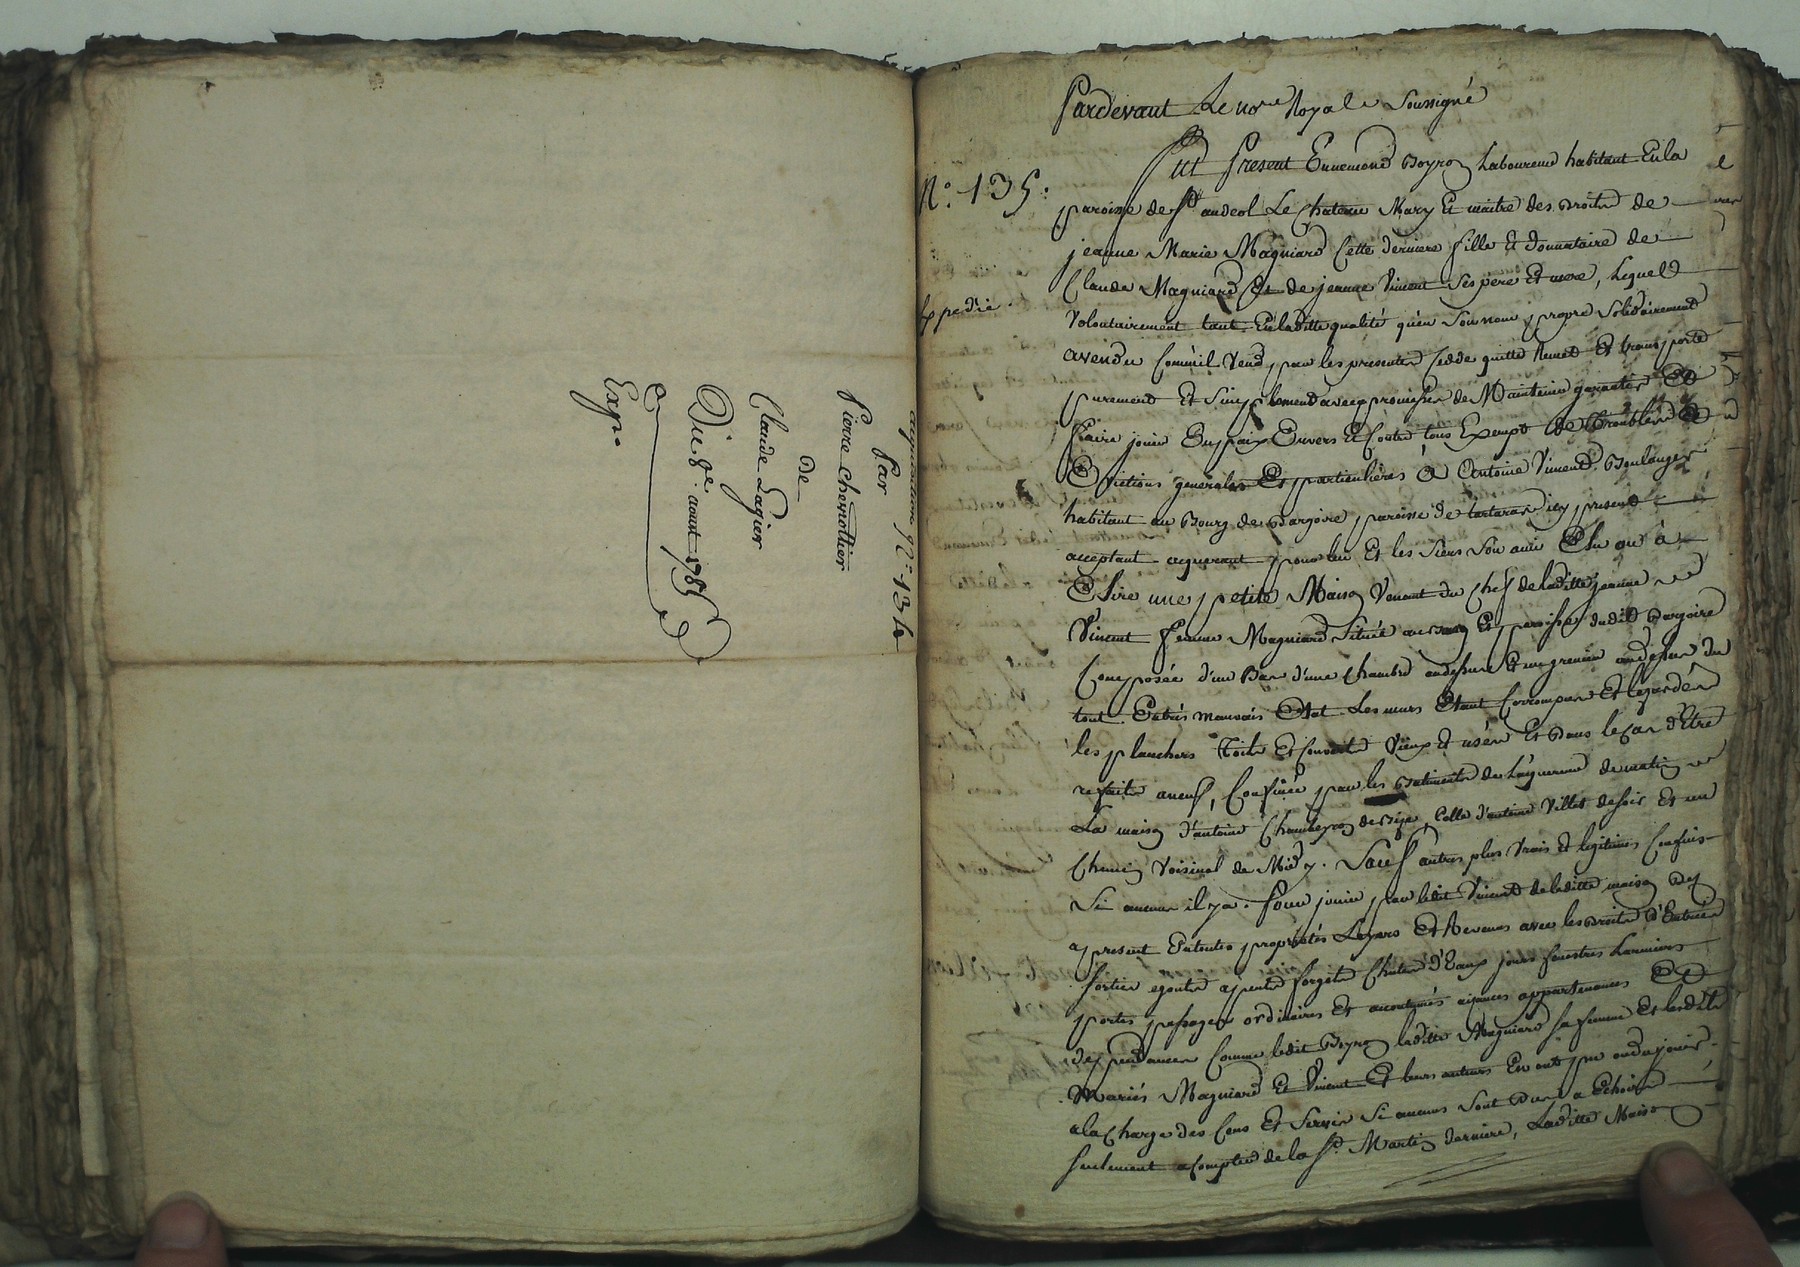 acquisition N.o 134
Par
Pierre chevrottier
De
Claude Lagier
Du 8e. aoust 1785
Expe.
Pardevant Le nore Royale Soussigné
N.o 135.
Fut Present Ennemond Boyron Laboureur habitant En la
paroisse de St andeol Le Chateau Mary Et maitre des Droits de
jeanne Marie Magniard Cette derniere fille Et donnataire de
Claude Magniard Et de jeanne Vincent Ses pere Et mere, Lequel
Expedié.
Volontairement tant En laditte qualité qu'en Son nom propre Solidairement
a vendu Comm'il Vend par les presentes Cedde quitte Remet Et transporte
purement Et Simplement avec promesse de Maintenir garantir Et
faire jouir En paix Envers Et Contre tous Exempt de troubles Et
Evictions generales Et particulières à Antoine Vincent Boulanger
habitant au Bourg de Dargoire paroisse de tartaras icy present
acceptant acquerant pour lui Et les Siens Son ami Elu ou à
Elire une petite Maison Venant du Chef de laditte jeanne
Vincent femme Magniard Située au Bourg Et paroisse dudit Dargoire
Composée d'un Bas d'une Chambre audessus Et un grenier audessus du
tout En très mauvais Etat Les murs Etant Corrompus Et lezardés
les planchers toits Et Couverts Vieux Et usés Et Dans le Cas d'Etre
refaits aneuf, Confinée par les Batiments de L'aquereur de matin
La maison d'antoine Chambeyron de Bize, Celle d'antoine Villet de soir Et un
Chemin Voisinal de Midy. Sauf autres plus Vrais Et legitimes Confins
Si aucuns il y a. Pour jouir par ledit Vincent de laditte maison dès
apresent En toutes proprietés Loyers Et Revenus avec les Droits d'Entrées
Sorties egouts apents forgets Chutes d'Eaux jours fenestres Larmiers
portes passages ordinaires Et accoutumés aisances appartenances Et
dependances Comme ledit Boyron laditte Magniard sa femme Et lesdits
Mariés Magniard Et Vincent Et leurs auteurs En ont pu ou du jouir
a la Charge des Cens Et Servis Si aucuns Sont Dus a Echoir
Seulement a Compter de la St. Martin derniere, Laditte Maison